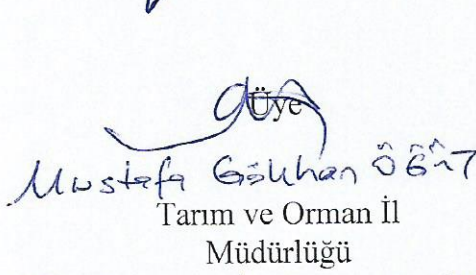 Üye
Mustafa Gökhan ÖĞÜT
Tarım ve Orman İl
Müdürlüğü